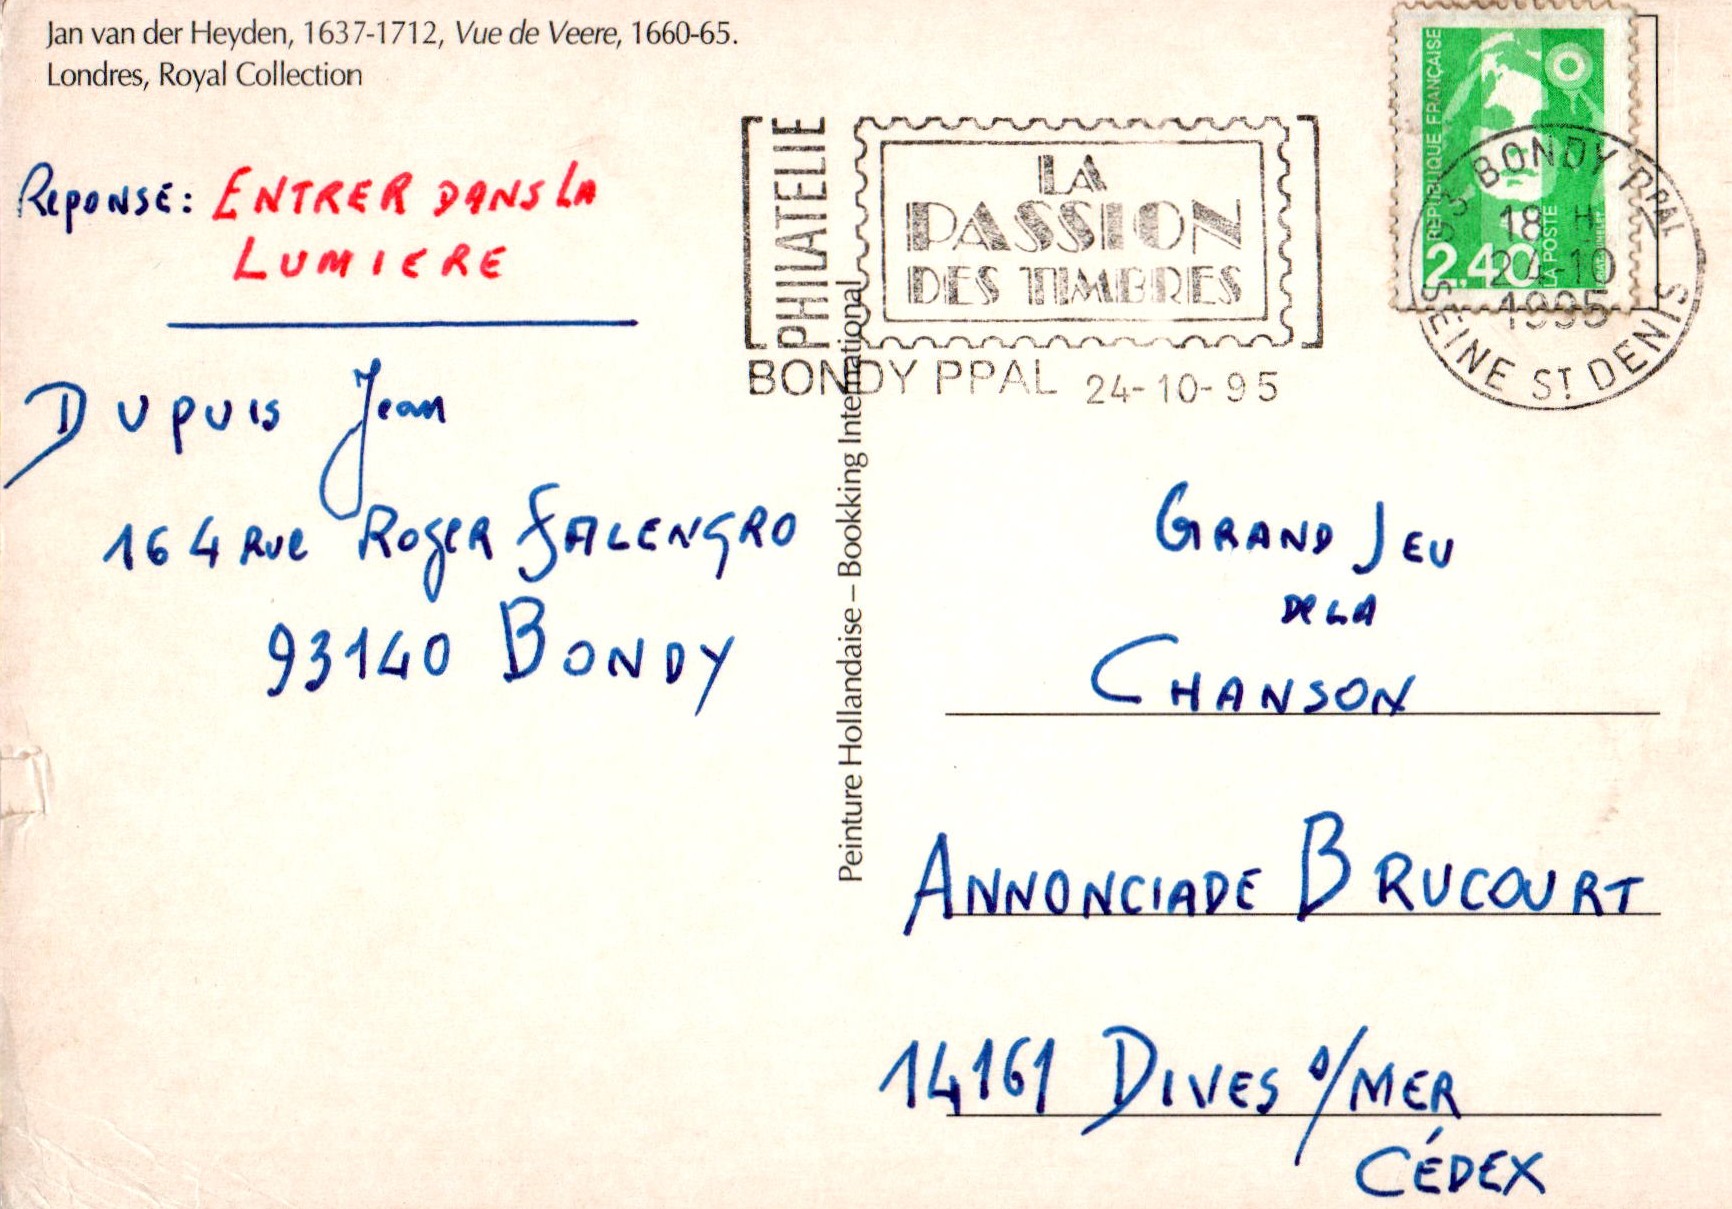 Jan van der Heyden, 1637-1712, Vue de Veere, 1660-65.
Londres, Royal Collection
REPONSE: ENTRER DANS LA
LUMIERE
DUPUIS Jean
164 Rue ROGER SALENGRO
93140 BONDY
Peinture Hollandaise – Bookking International
PHILATELIE
LA
PASSION
DES TIMBRES
BONDY PPAL 24-10-95
REPUBLIQUE FRANÇAISE
2,40
LA POSTE
93 BONDY PPAL
18 H
24-10
1995
SEINE ST DENIS
GRAND JEU
De LA
CHANSON
ANNONCIADE BRUCOURT
14161 DIVES s/MER
CÉDEX